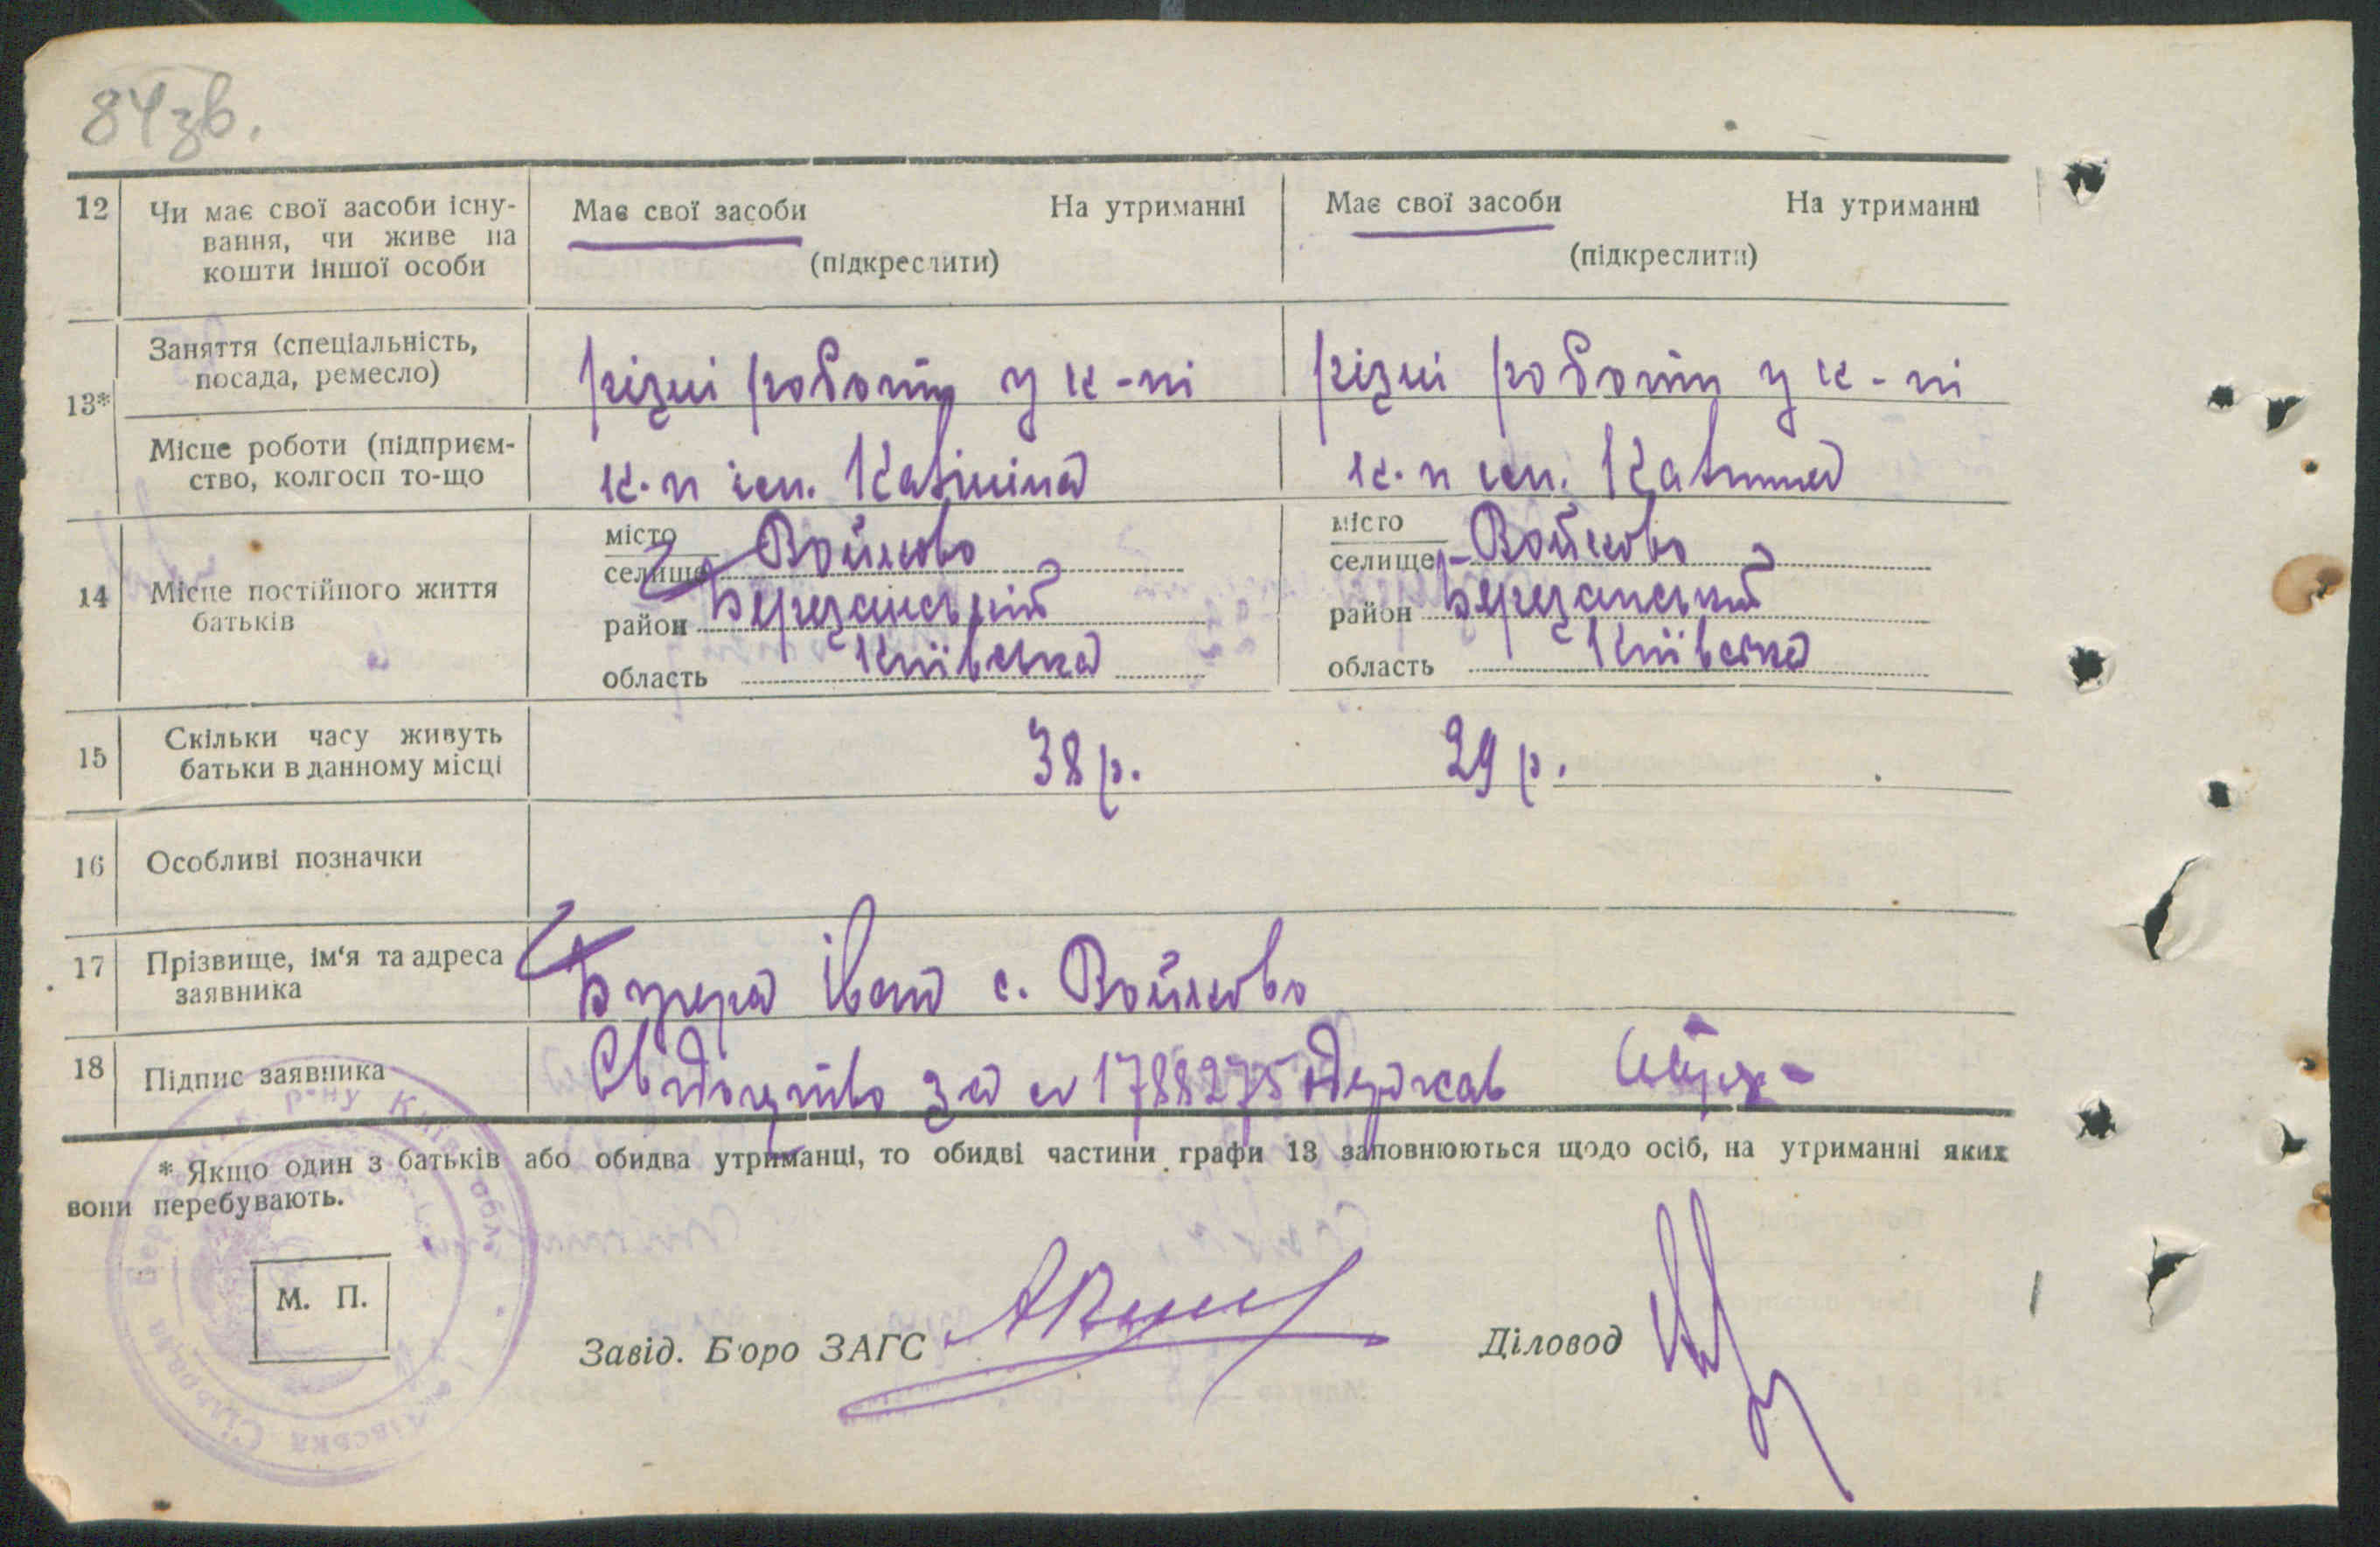 84зв.
12 Чи має свої засоби існу- Має свої засоби На утриманні Має свої засоби На утриманні
вання, чи живе на
кошти іншої особи (підкреслити) (підкреслити)
13* Заняття (спеціальність,
посада, ремесло) різні роботи у к-пі різні роботи у к-пі
Місце роботи (підприєм-
ство, колгосп то-що к-п ім. Калініна к-п ім. Калініна
14 Місце постійного життя
батьків
місто
селище Войково
район Березанський
область Київська
місто
селище Войково
район Березанський
область Київська
15 Скільки часу живуть
батьки в данному місці 38 р. 29 р.
16 Особливі позначки
17 Прізвище, ім'я та адреса
заявника Бузера Іван с. Войково
18 Підпис заявника Свидоцтво за № 1788275 одержав
* Якщо один з батьків або обидва утриманці, то обидві частини графи 13 заповнюються щодо осіб, на утриманні яких
вони перебувають.
М. П.
Завід. Бюро ЗАГС
Діловод